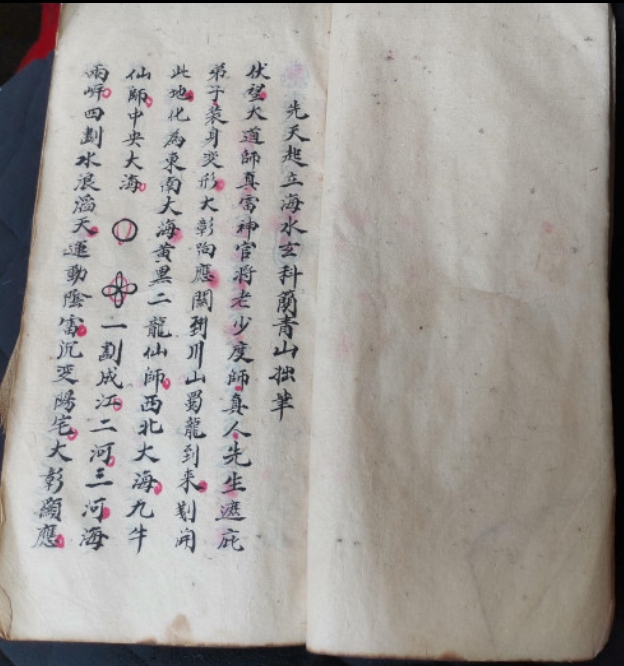 先天起立海水玄科蘭青山拙筆
伏望大道師真雷神官将老少度師真人先生遮庇
弟子裝身变形大彰陷應闗到川山蜀龍到来剗開
此地化為東南大海黄黒二龍仙師西北大海九牛
仙師中央大海一劃成江二河三河海
両岬四劃水浪滔天運動陰雷沉变陽宅大彰顯應